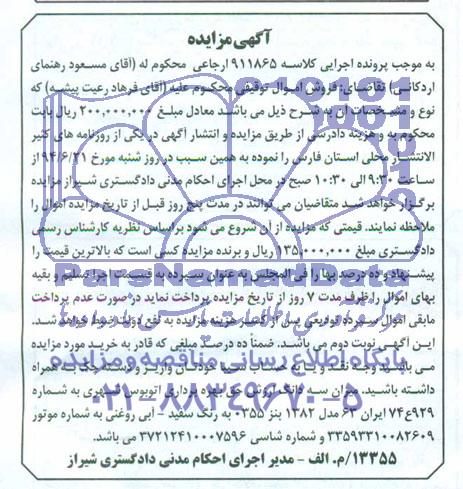 آگهی مزایده
به موجب پرونده اجرایی کلاسه ۹۱۱۸۶۵ ارجاعی محکوم له (آقای مسعود رهنمای
اردکانی) تقاضای: فروش اموال توقیفی محکوم علیه (آقای فرهاد رعیت پیشه) که
نوع و مشخصات آن به شرح ذیل می باشد معادل مبلغ ۲۰۰,۰۰۰,۰۰۰ ریال بابت
محکوم به و هزینه دادرسی از طریق مزایده و انتشار آگهی در یکی از روزنامه های کثیر
الانتشار محلی استان فارس را نموده به همین سبب در روز شنبه مورخ ۹۴/۶/۲۱ از
ساعت ۹:۳۰ الی ۱۰:۳۰ صبح در محل اجرای احکام مدنی دادگستری شیراز مزایده
برگزار خواهد شد متقاضیان می توانند در مدت پنج روز قبل از تاریخ مزایده اموال را
ملاحظه نمایند. قیمتی که مزایده از آن شروع می شود براساس نظریه کارشناس رسمی
دادگستری مبلغ ۱۳۵,۰۰۰,۰۰۰ ریال و برنده مزایده کسی است که بالاترین قیمت را
پیشنهاد و ده درصد بها را فی المجلس به عنوان سپرده به قسمت اجرا تسلیم و بقیه
بهای اموال را ظرف مدت ۷ روز از تاریخ مزایده پرداخت نماید در صورت عدم پرداخت
مابقی اموال سپرده تودیعی پس از کسر هزینه مزایده به نفع دولت ضبط خواهد شد.
این آگهی نوبت دوم می باشد. ضمناً ده درصد مبلغی که قادر به خرید مورد مزایده
می باشید وجه نقد و یا به حساب سیبا خودتان واریز و دسته چک به همراه
داشته باشید. میزان سه دانگ پیش حق بهره برداری اتوبوس شهری به شماره
۹۲۹ع۷۴ ایران ۶۳ مدل ۱۳۸۲ بنز ۰۳۵۵ به رنگ سفید - آبی روغنی به شماره موتور
۳۳۵۹۳۳۱۰۰۸۲۶۰۹ و شماره شاسی ۳۷۲۱۲۴۱۰۰۰۷۵۹۶ می باشد.
۱۳۳۵۵/م. الف - مدیر اجرای احکام مدنی دادگستری شیراز
ParsNamadData
پایگاه اطلاع رسانی مناقصه و مزایده
۰۲۱-۸۸۳۴۹۶۷۰-۵